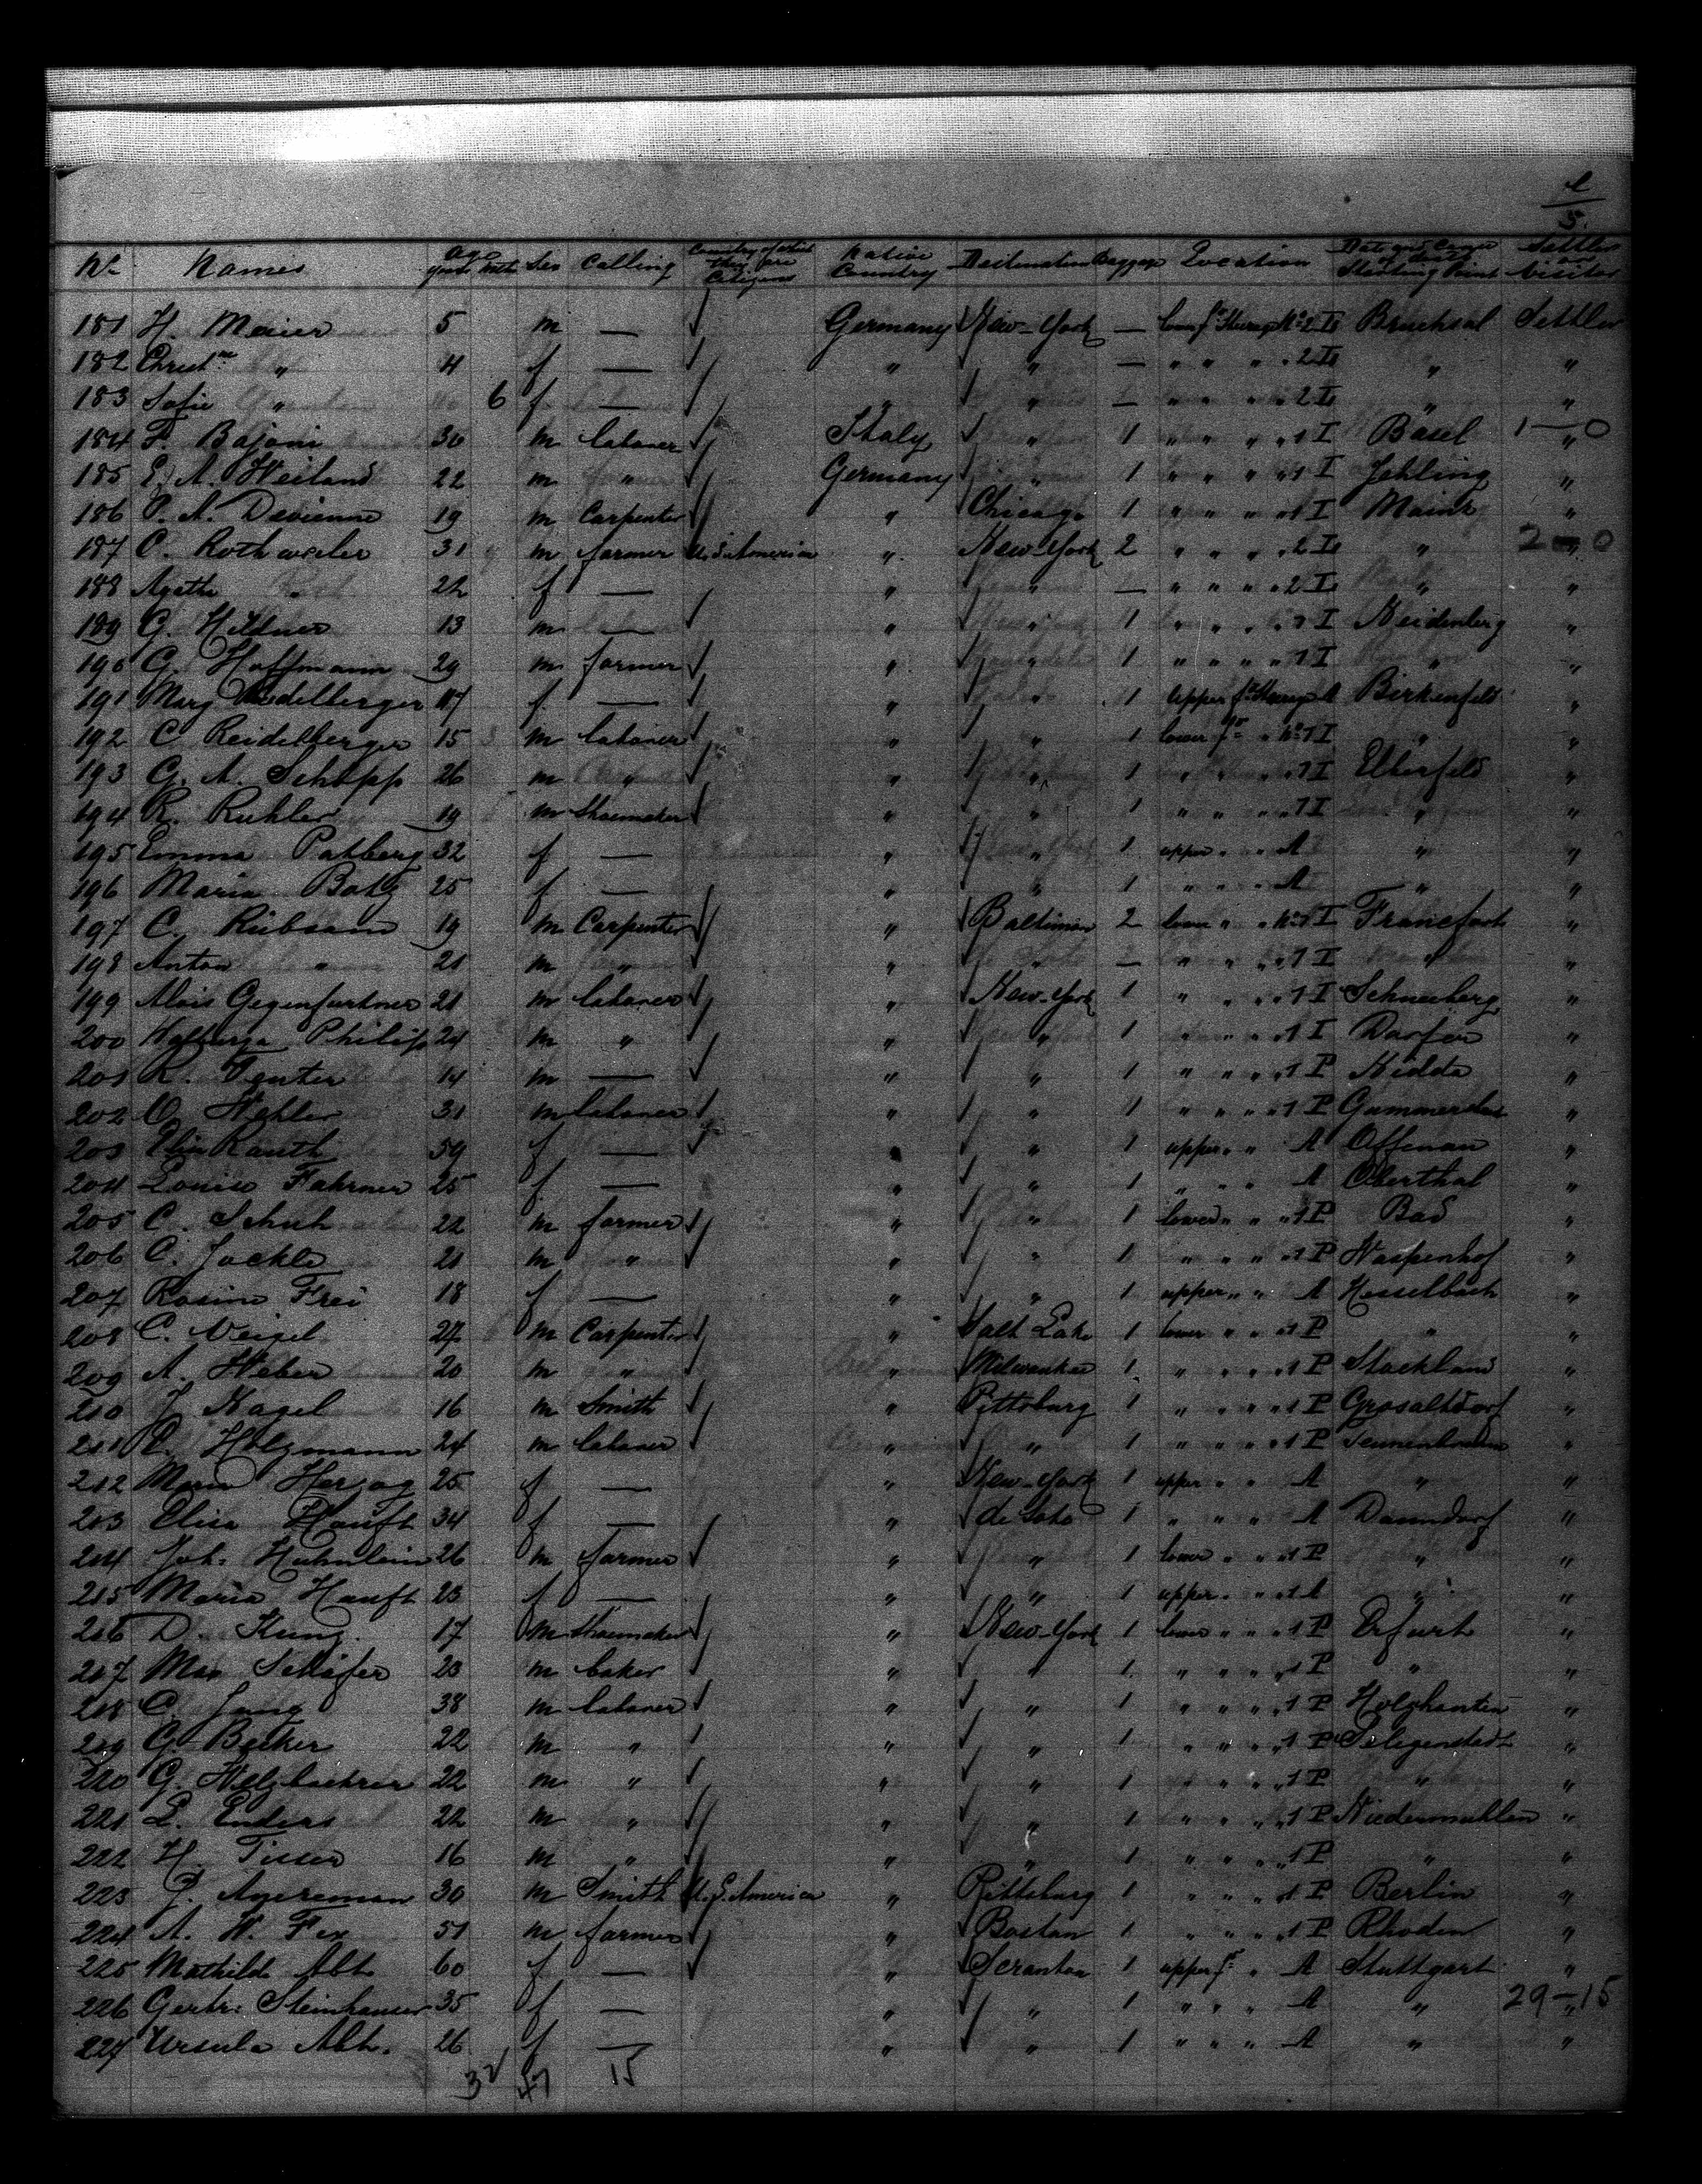 N<u>o</u> Names Age years mth Sex Calling Country of which they are Citizens Native Country Destination Baggage Location Date and Cause of death Starting Point Settler or Visitor
181 H. Meier 5 m — Germany New-York — lower f. Steerage No 2 I Bruchsal Settler
182 Christne " 4 f — " " — " " " " 2 I " "
183 Sofie " 6 f — " " — " " " " 2 I " "
184 F. Bajoni 30 m labourer Italy " 1 " " " " 1 I Basel 1—0 "
185 E. A. Weiland 22 m " Germany " 1 " " " " 1 I "
186 P. A. Devienne 19 m Carpenter " Chicago 1 " " " " 1 I Mainz "
187 C. Rothweiler 31 m farmer U. S. America " New-York 2 " " " " 2 I " 2—0 "
188 Agathe " 22 f — " " — " " " " 2 I " "
189 G. Hiltner 13 m — " " 1 " " " " 1 I Neidenberg "
190 G. Hoffmann 29 m farmer " " 1 " " " " 1 I " "
191 Marg Reidelberger 17 f — " " 1 upper f. Steerage A Birkenfeld "
192 C. Reidelberger 15 m labourer " " 1 lower f. " No 1 I " "
193 G. A. Schopp 26 m " " " 1 " " " " 1 I Elberfeld "
194 R. Ruhler 19 m Shoemaker " " 1 " " " " 1 I " "
195 Emma Patberg 32 f — " " 1 upper " " A " "
196 Maria Batz 25 f — " " 1 " " " A " "
197 C. Rübsam 19 m Carpenter " Baltimore 2 lower " " No 1 I Francfort "
198 Anton " 21 m " " " — " " " " 1 I " "
199 Alois Gegenfurtner 21 m labourer " New-York 1 " " " " 1 I Schneeberg "
200 Walburga Philipp 24 m " " " 1 " " " " 1 I Dorfen "
201 R. Venter 14 m — " " 1 " " " " 1 P Nidda "
202 O. Wehler 31 m labourer " " 1 " " " " 1 P "
203 Elis Rauth 59 f — " " 1 upper " " A Offenau "
204 Louise Fahrner 25 f — " " 1 " " " A Oberthal "
205 C. Schuh 22 m farmer " " 1 lower " " " 1 P Bad "
206 C. Jackle 21 m " " " 1 " " " " 1 P Waspenhof "
207 Rosine Frei 18 f — " " 1 upper " " A Hesselbach "
208 C. Veigel 27 m Carpenter " Salt Lake 1 lower " " " 1 P " "
209 A. Weber 20 m " " Milwaukee 1 " " " " 1 P Stackland "
210 J. Nagel 16 m Smith " Pittsburg 1 " " " " 1 P Grosaltdorf "
211 Holzmann 24 m labourer " " 1 " " " " 1 P "
212 Maria Herzog 25 f — " New-York 1 upper " " A " "
213 Elisa Hauft 34 f — " de Soto 1 " " " A Danndorf "
214 Joh. Huhnlein 26 m farmer " " 1 lower " " " 1 P " "
215 Maria Hauft 23 f — " " 1 upper " " 1 A " "
216 D. Kung 17 m Shoemaker " New-York 1 lower " " " 1 P Erfurt "
217 Max Schäfer 23 m baker " " 1 " " " " 1 P " "
218 C. Jung 38 m labourer " " 1 " " " " 1 P "
219 G. Becker 22 m " " " 1 " " " " 1 P Selegenstadt "
220 G. 22 m " " " 1 " " " " 1 P " "
221 L. Enders 22 m " " " 1 " " " " 1 P Niedermuhlen "
222 H. Tisser 16 m " " " 1 " " " " 1 P " "
223 Ayereman 30 m Smith U. S. America " Pittsburg 1 " " " " 1 P Berlin "
224 A. W. Fex 51 m farmer " Boston 1 " " " " 1 P Rhoden "
225 Mathilde Abt 60 f — " Scranton 1 upper f. " A Stuttgart "
226 Gertr: Steinhauser 35 f — " " 1 " " " A " 29—15 "
227 Ursula Abt. 26 f — " " 1 " " " A " "
32 47 15